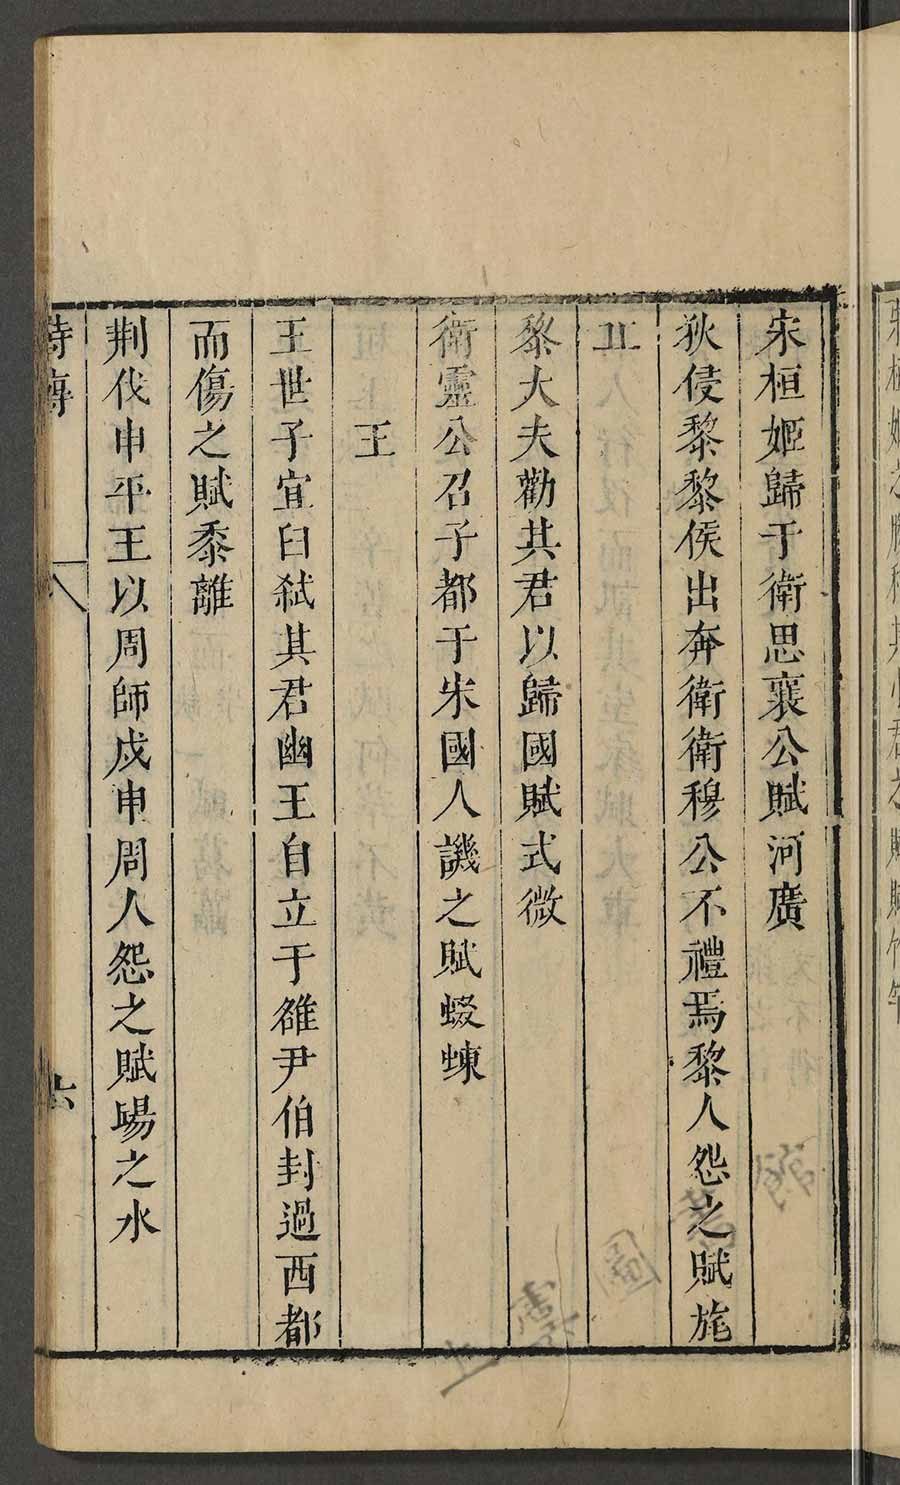 宋桓姬歸于衛思襄公賦河廣
狄侵黎黎侯出奔衛衛穆公不禮焉黎人怨之賦旄
丘
黎大夫勸其君以歸國賦式微
衛靈公召子都于宋國人譏之賦蝃蝀
王
王世子宜臼弒其君幽王自立于雒尹伯封過西都
而傷之賦黍離
荆伐申平王以周師戍申周人怨之賦昜之水
詩傳
六